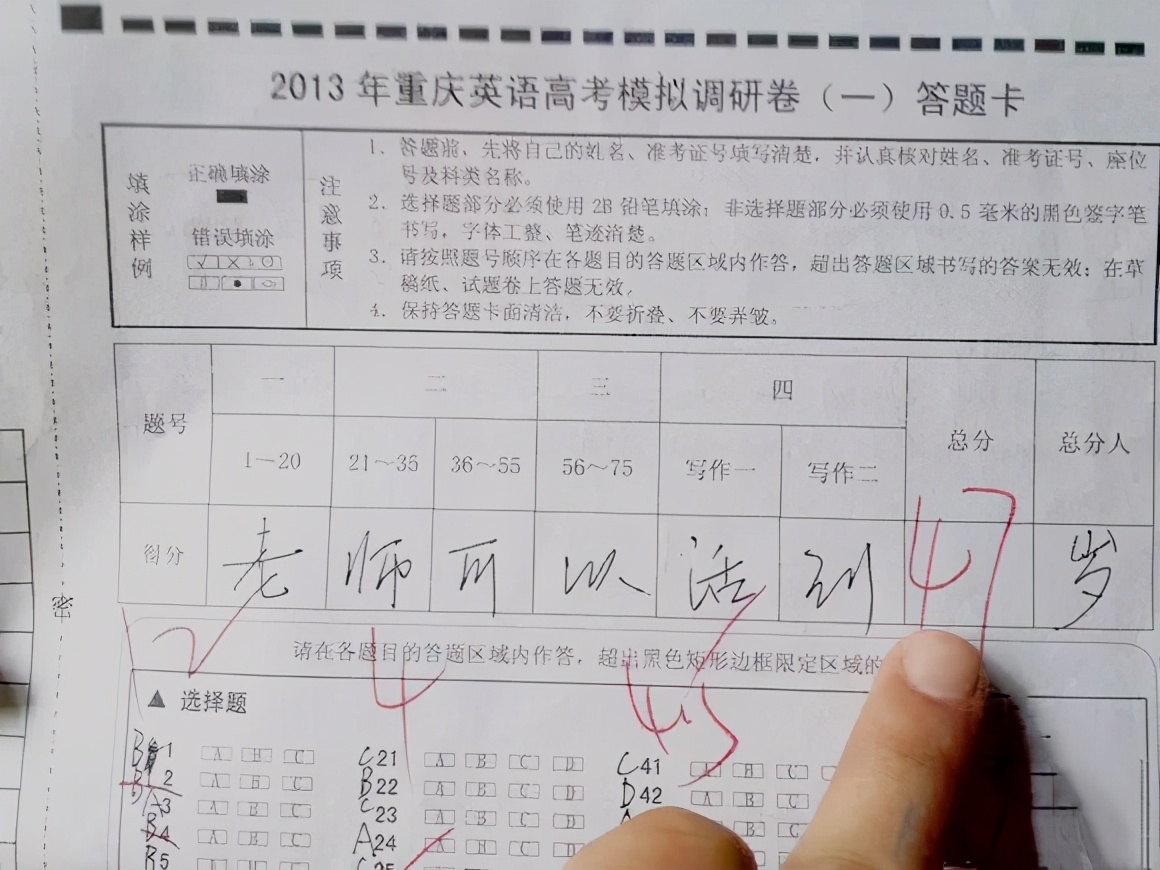 2013年重庆英语高考模拟调研卷（一）答题卡
填涂样例
正确填涂
错误填涂
注意事项
1. 答题前，先将自己的姓名、准考证号填写清楚，并认真核对姓名、准考证号、座位
号及科类名称。
2. 选择题部分必须使用2B铅笔填涂；非选择题部分必须使用0.5毫米的黑色签字笔
书写，字体工整、笔迹清楚。
3. 请按照题号顺序在各题目的答题区域内作答，超出答题区域书写的答案无效；在草
稿纸、试题卷上答题无效。
4. 保持答题卡面清洁，不要折叠、不要弄皱。
题号 一 二 三 四 总分 总分人
1—20 21～35 36～55 56～75 写作一 写作二
得分 老 师 可 以 活 到 47 岁
密
请在各题目的答题区域内作答，超出黑色矩形边框限定区域的
▲ 选择题
1 A B C C21 A B C D C41 A B C
2 A B C B22 A B C D D42 A B C
A3 A B C C23 A B C D
B4 A B C A24 A B C D
B5